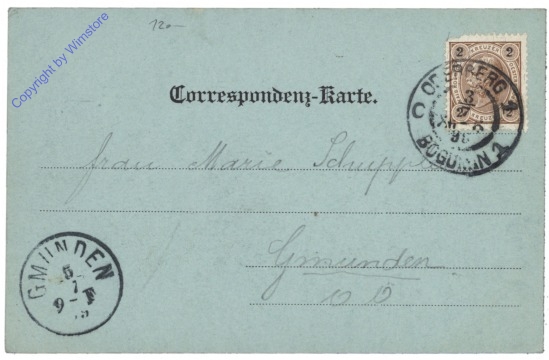 Copyright by Wimstore
120-
2 KREUZER 2
ODERBERG 1
3
7
98
BOGUMIN 1
Correspondenz-Karte.
Frau Marie
Gmunden
GMUNDEN
5
7
9-F